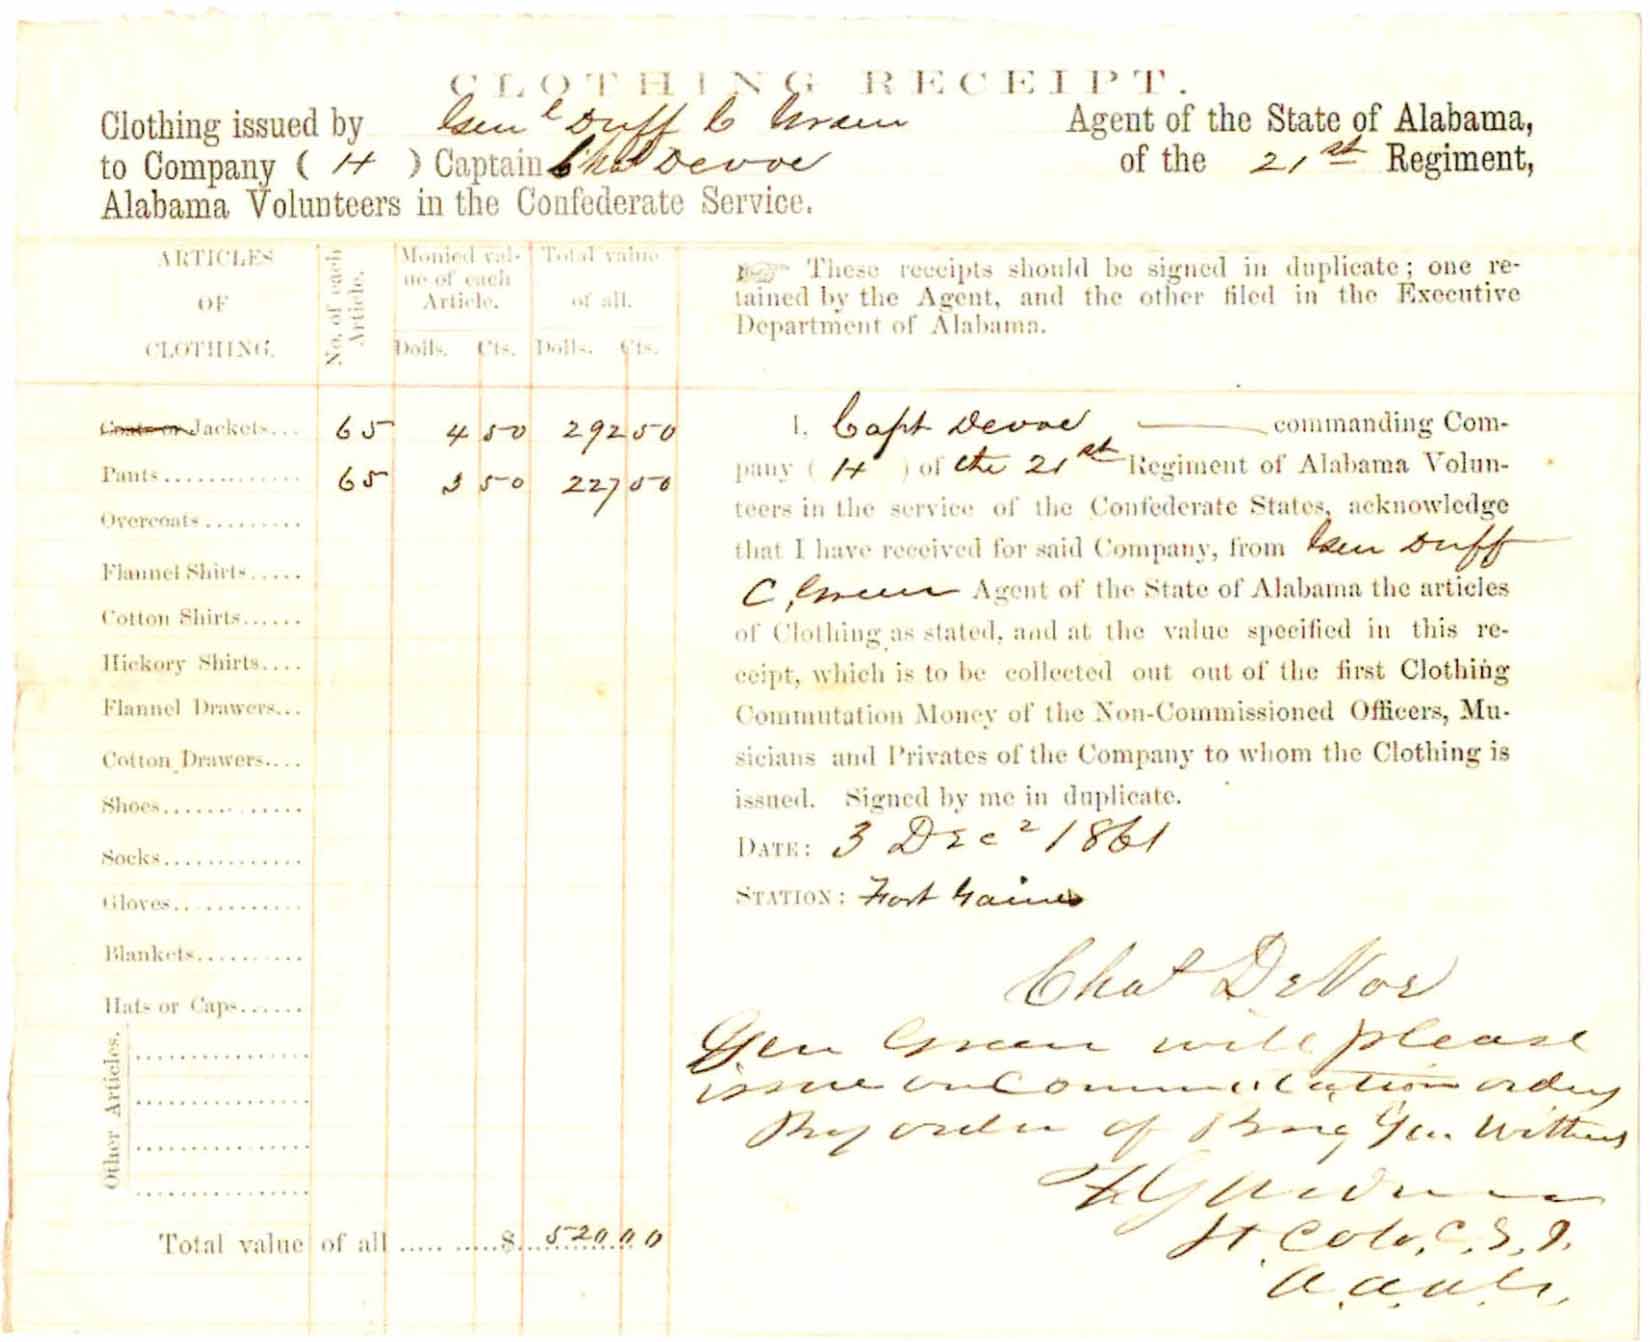 CLOTHING RECEIPT.
Clothing issued by Genl Duff C Green Agent of the State of Alabama,
to Company ( H ) Captain Chas Devoe of the 21st Regiment,
Alabama Volunteers in the Confederate Service.
ARTICLES OF CLOTHING.
No. of each Article.
Monied value of each Article.
Total value of all.
Dolls. Cts. Dolls. Cts.
Coats or Jackets... 65 4 50 292 50
Pants............. 65 3 50 227 50
Overcoats.........
Flannel Shirts.....
Cotton Shirts......
Hickory Shirts....
Flannel Drawers...
Cotton Drawers....
Shoes.............
Socks.............
Gloves............
Blankets..........
Hats or Caps......
Other Articles.
Total value of all ..... .....$. 520 00
☞ These receipts should be signed in duplicate; one re-
tained by the Agent, and the other filed in the Executive
Department of Alabama.
I, Capt Devoe commanding Com-
pany ( H ) of the 21st Regiment of Alabama Volun-
teers in the service of the Confederate States, acknowledge
that I have received for said Company, from Gen Duff
C. Green Agent of the State of Alabama the articles
of Clothing as stated, and at the value specified in this re-
ceipt, which is to be collected out out of the first Clothing
Commutation Money of the Non-Commissioned Officers, Mu-
sicians and Privates of the Company to whom the Clothing is
issued. Signed by me in duplicate.
DATE: 3 Dec 1861
STATION: Fort Gaines
Chas DeVoe
Gen Green will please
issue on Commutation orders
By order of Brig Gen. Withers
Lt. Col. C.S.A.
A.A.A.G.